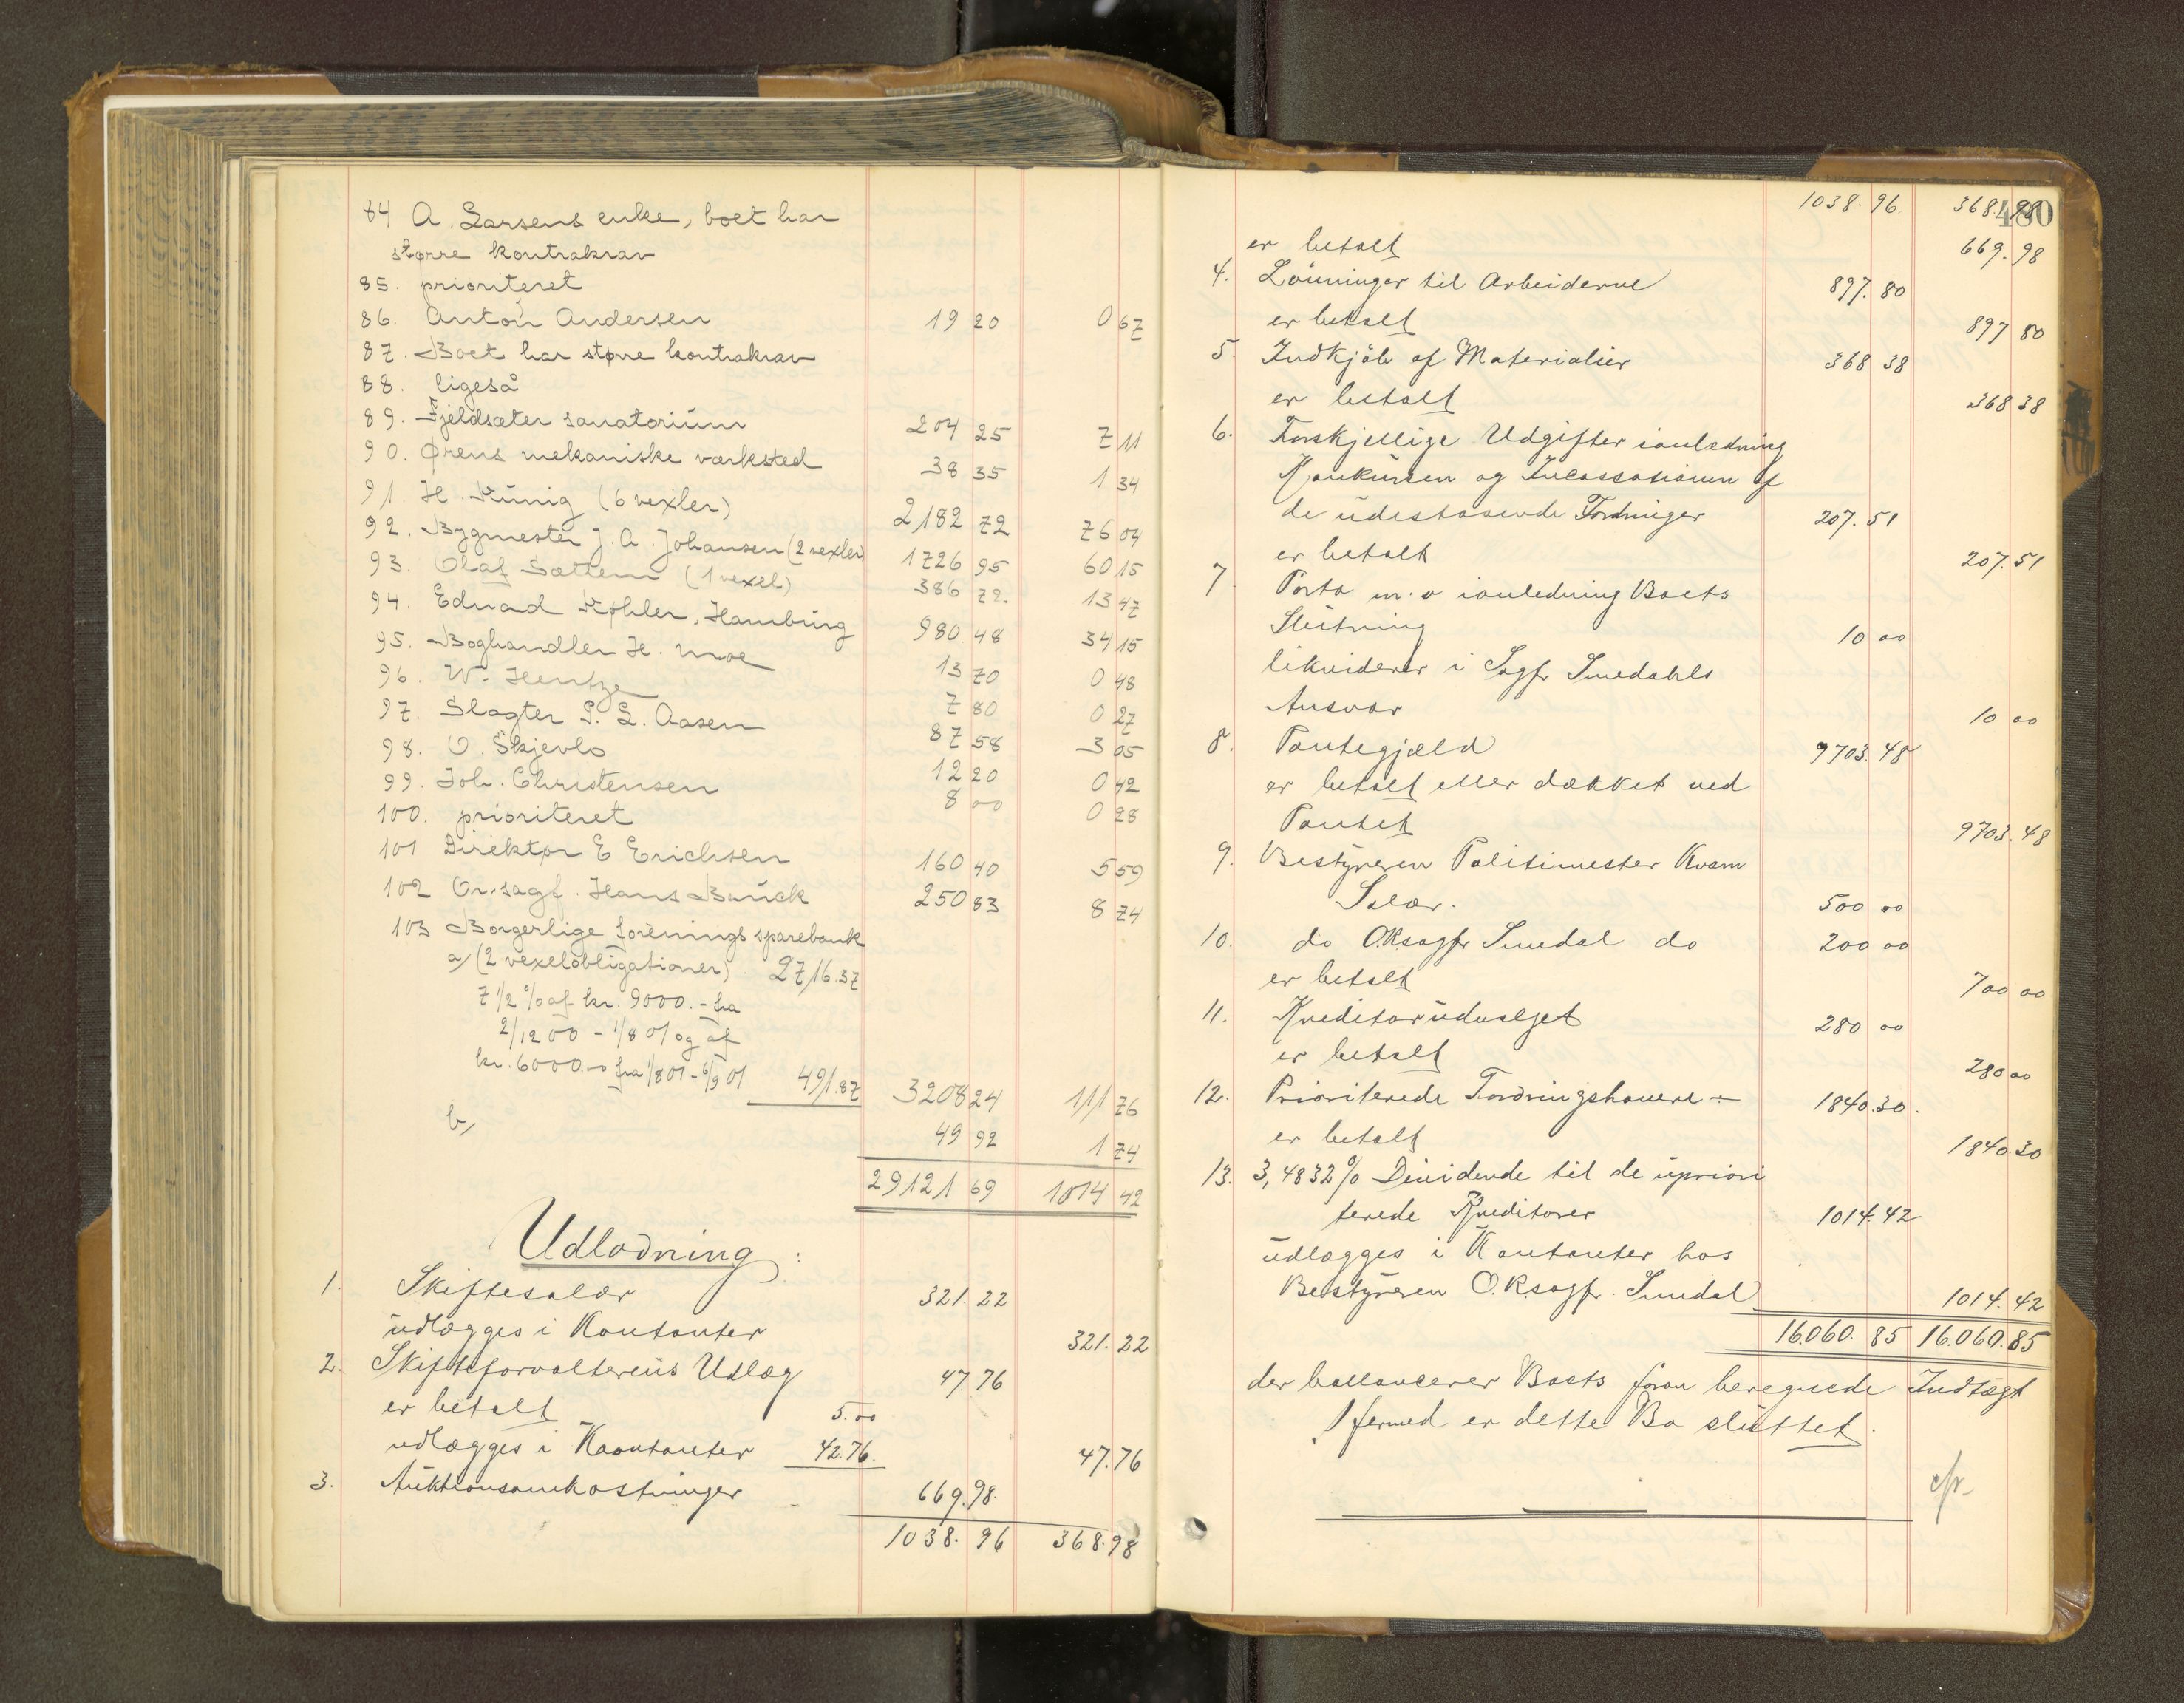 84 A. Larsens enke, boet har
større kontrakrav
85. prioriteret
86. Anton Andersen 19 20 0 67
87. Boet har større kontrakrav
88. ligeså
89. Fjeldsæter sanatorium 204 25 7 11
90. Ørens mekaniske værksted 38 35 1 34
91 H. König (6 vexler) 2182 72 76 04
92. Bygmester J. A. Johansen (2 vexler) 1726 95 60 15
93. Olaf Sættem (1 vexel) 386 72. 13 47
94. Eduard Köhler, Hamburg 980 48 34 15
95. Boghandler H. Moe 13 70 0 48
96. W. Hentze 7 80 0 27
97. Slagter P. L. Aasen 87 58 3 05
98. O. Skjevlo 12 20 0 42
99. Joh. Christensen 8 00 0 28
100. prioriteret
101 Direktør E Erichsen 160 40 5 59
102 Or.sagf. Hans Bauck 250 83 8 74
103 Borgerlige forenings sparebank
a/ (2 vexelobligationer) 2716.37
7 1/2 % af kr. 9000.- fra
2/12 00 - 1/8 01 og af
kr. 6000.- fra 1/8 01 - 6/9 01 491.87 3208 24 111 76
b, 49 92 1 74
29121 69 1014 42
Udlodning:
1. Skiftesalær 321. 22
udlægges i Kontanter 321. 22
2. Skifteforvalterens Udlæg 47. 76
er betalt 5.00
udlægges i Kaontanter 42.76. 47.76
3. Auktionsomkostninger 669.98.
1038. 96 368.98
480
1038. 96 368.98
er betalt 669.98
4. Lönninger til Arbeiderne 897. 80
er betalt 897 80
5. Indkjöb af Materialier 368 38
er betalt 368 38
6. Forskjellige Udgifter ianledning
Konkursen og Incassationen af
de udestaaende Fordringer 207. 51
er betalt 207. 51
7 Porto m. v ianledning Boets
Slutning 10 00
likviderer i Sagfr Smedahls
Ansvar 10 00
8. Pantegjæld 9703. 48
er betalt eller dækket ved
Pantet 9703. 48
9. Bestyreren Politimester Kvam
Salær. 500 00
10. do O.Rsagfr Smedal do 200 00
er betalt 700 00
11. Kreditorudvalget 280 00
er betalt 280 00
12. Prioriterede Fordringshavere - 1840.30.
er betalt 1840.30
13. 3,4832 % Dividende til de upriori
terede Kreditorer 1014.42
udlægges i Kontanter hos
Bestyreren O.R.sagfr. Smedal 1014. 42
16.060. 85 16.060.85
der ballancerer Boets foran beregnede Indtægt
Hermed er dette Bo sluttet.